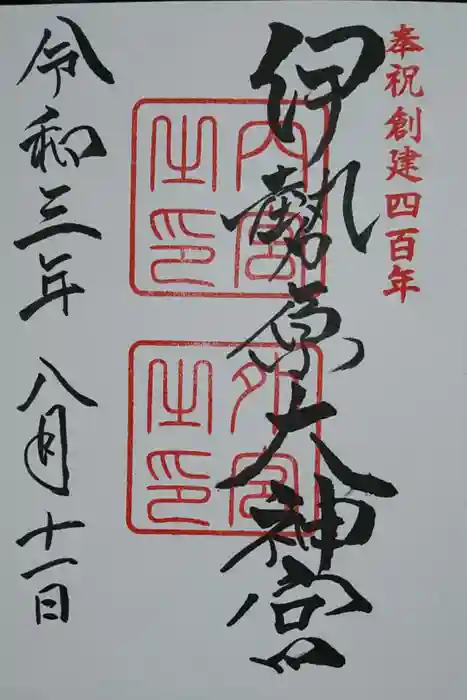 奉祝創建四百年
伊勢原大神宮
内宮之印
外宮之印
令和三年八月十一日